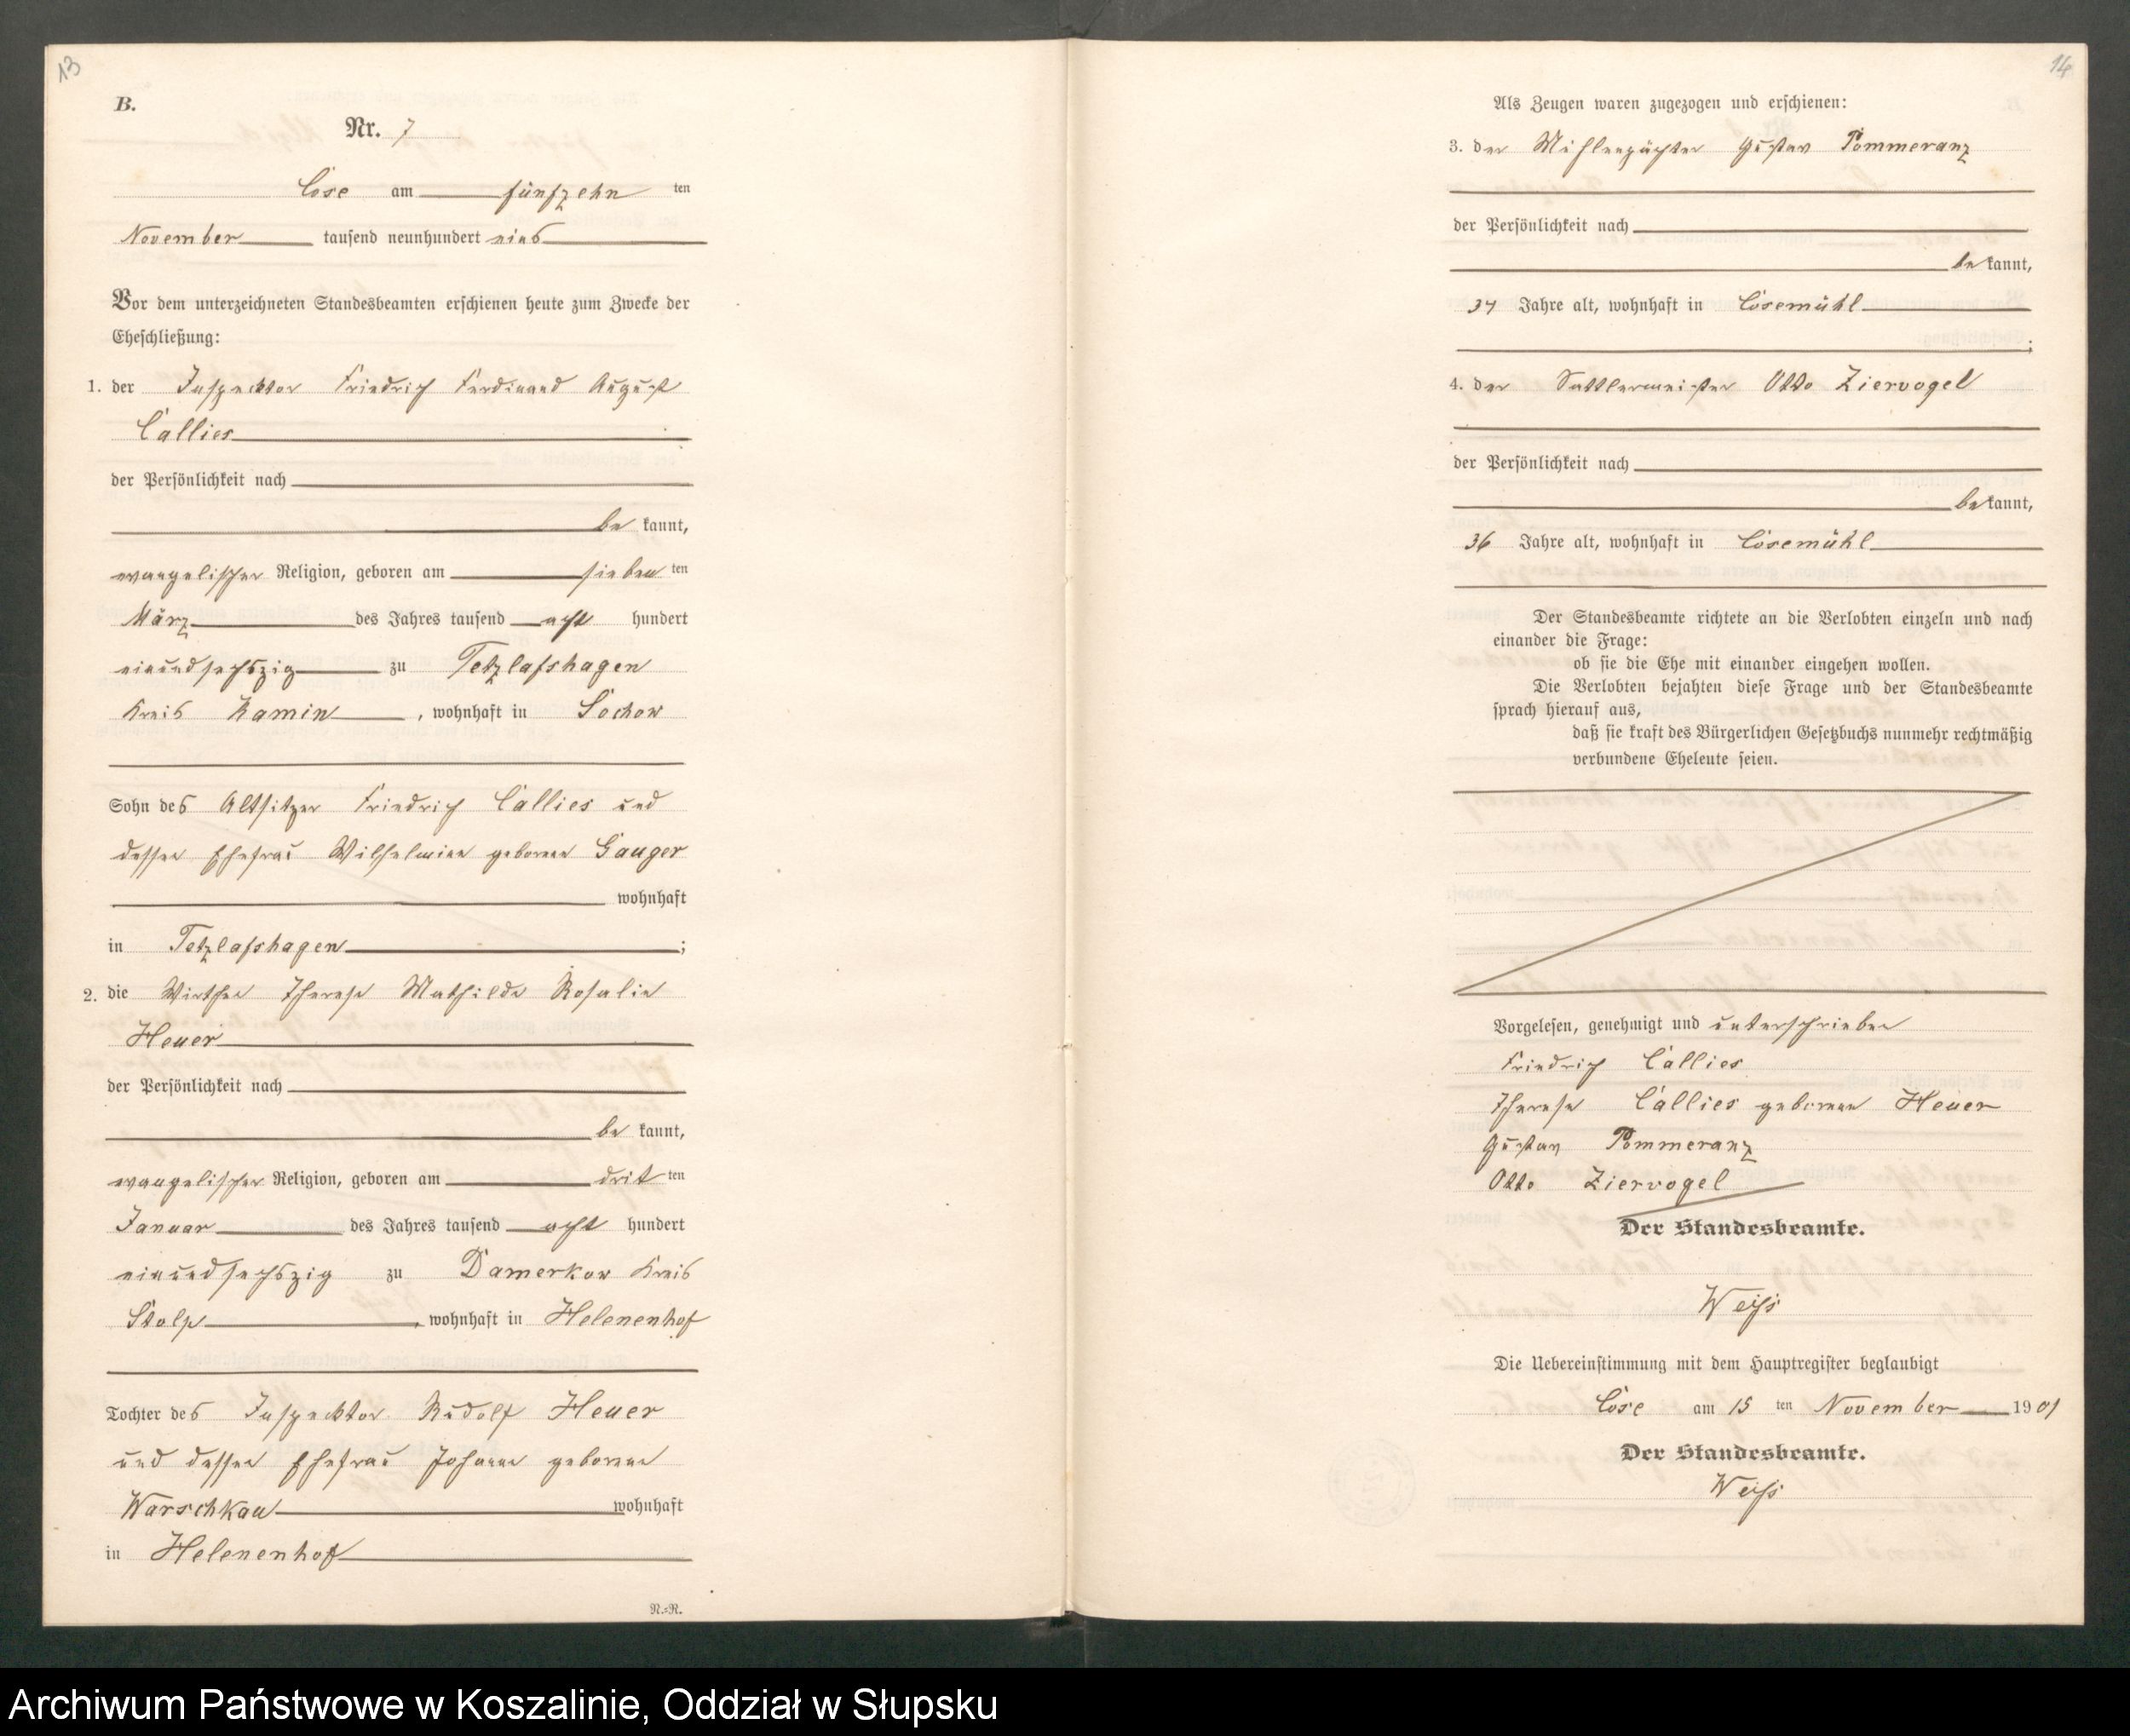 13
B.
Nr. 7
Cose am fünfzehn ten
November tausend neunhundert eins
Vor dem unterzeichneten Standesbeamten erschienen heute zum Zwecke der
Eheschließung:
1. der Inspecktor Friedrich Ferdinand August
Callies
der Persönlichkeit nach
be kannt,
evangelischer Religion, geboren am sieben ten
März des Jahres tausend acht hundert
einundsechszig zu Tetzlafshagen
Kreis Kamin, wohnhaft in Sochow
Sohn des Altsitzer Friedrich Callies und
dessen Ehefrau Wilhelmine geborene Gauger
wohnhaft
in Tetzlafshagen;
2. die Wirthin Therese Mathilde Rosalie
Heuer
der Persönlichkeit nach
be kannt,
evangelischer Religion, geboren am drit ten
Januar des Jahres tausend acht hundert
einundsechszig zu Damerkow Kreis
Stolp, wohnhaft in Helenenhof
Tochter des Inspecktor Rudolf Heuer
und dessen Ehefrau Johanne geborene
Warschkau wohnhaft
in Helenenhof
N.=R.
14
Als Zeugen waren zugezogen und erschienen:
3. der Mühlenpächter Gustav Pommeranz
der Persönlichkeit nach
be kannt,
37 Jahre alt, wohnhaft in Cosemühl
;
4. der Sattlermeister Otto Ziervogel
der Persönlichkeit nach
be kannt,
36 Jahre alt, wohnhaft in Cosemühl
Der Standesbeamte richtete an die Verlobten einzeln und nach
einander die Frage:
ob sie die Ehe mit einander eingehen wollen.
Die Verlobten bejahten diese Frage und der Standesbeamte
sprach hierauf aus,
daß sie kraft des Bürgerlichen Gesetzbuchs nunmehr rechtmäßig
verbundene Eheleute seien.
Vorgelesen, genehmigt und unterschrieben
Friedrich Callies
Therese Callies geborene Heuer
Gustav Pommeranz
Otto Ziervogel
Der Standesbeamte.
Weiß
Die Uebereinstimmung mit dem Hauptregister beglaubigt
Cose am 15 ten November 1901
Der Standesbeamte.
Weiß
Archiwum Państwowe w Koszalinie, Oddział w Słupsku